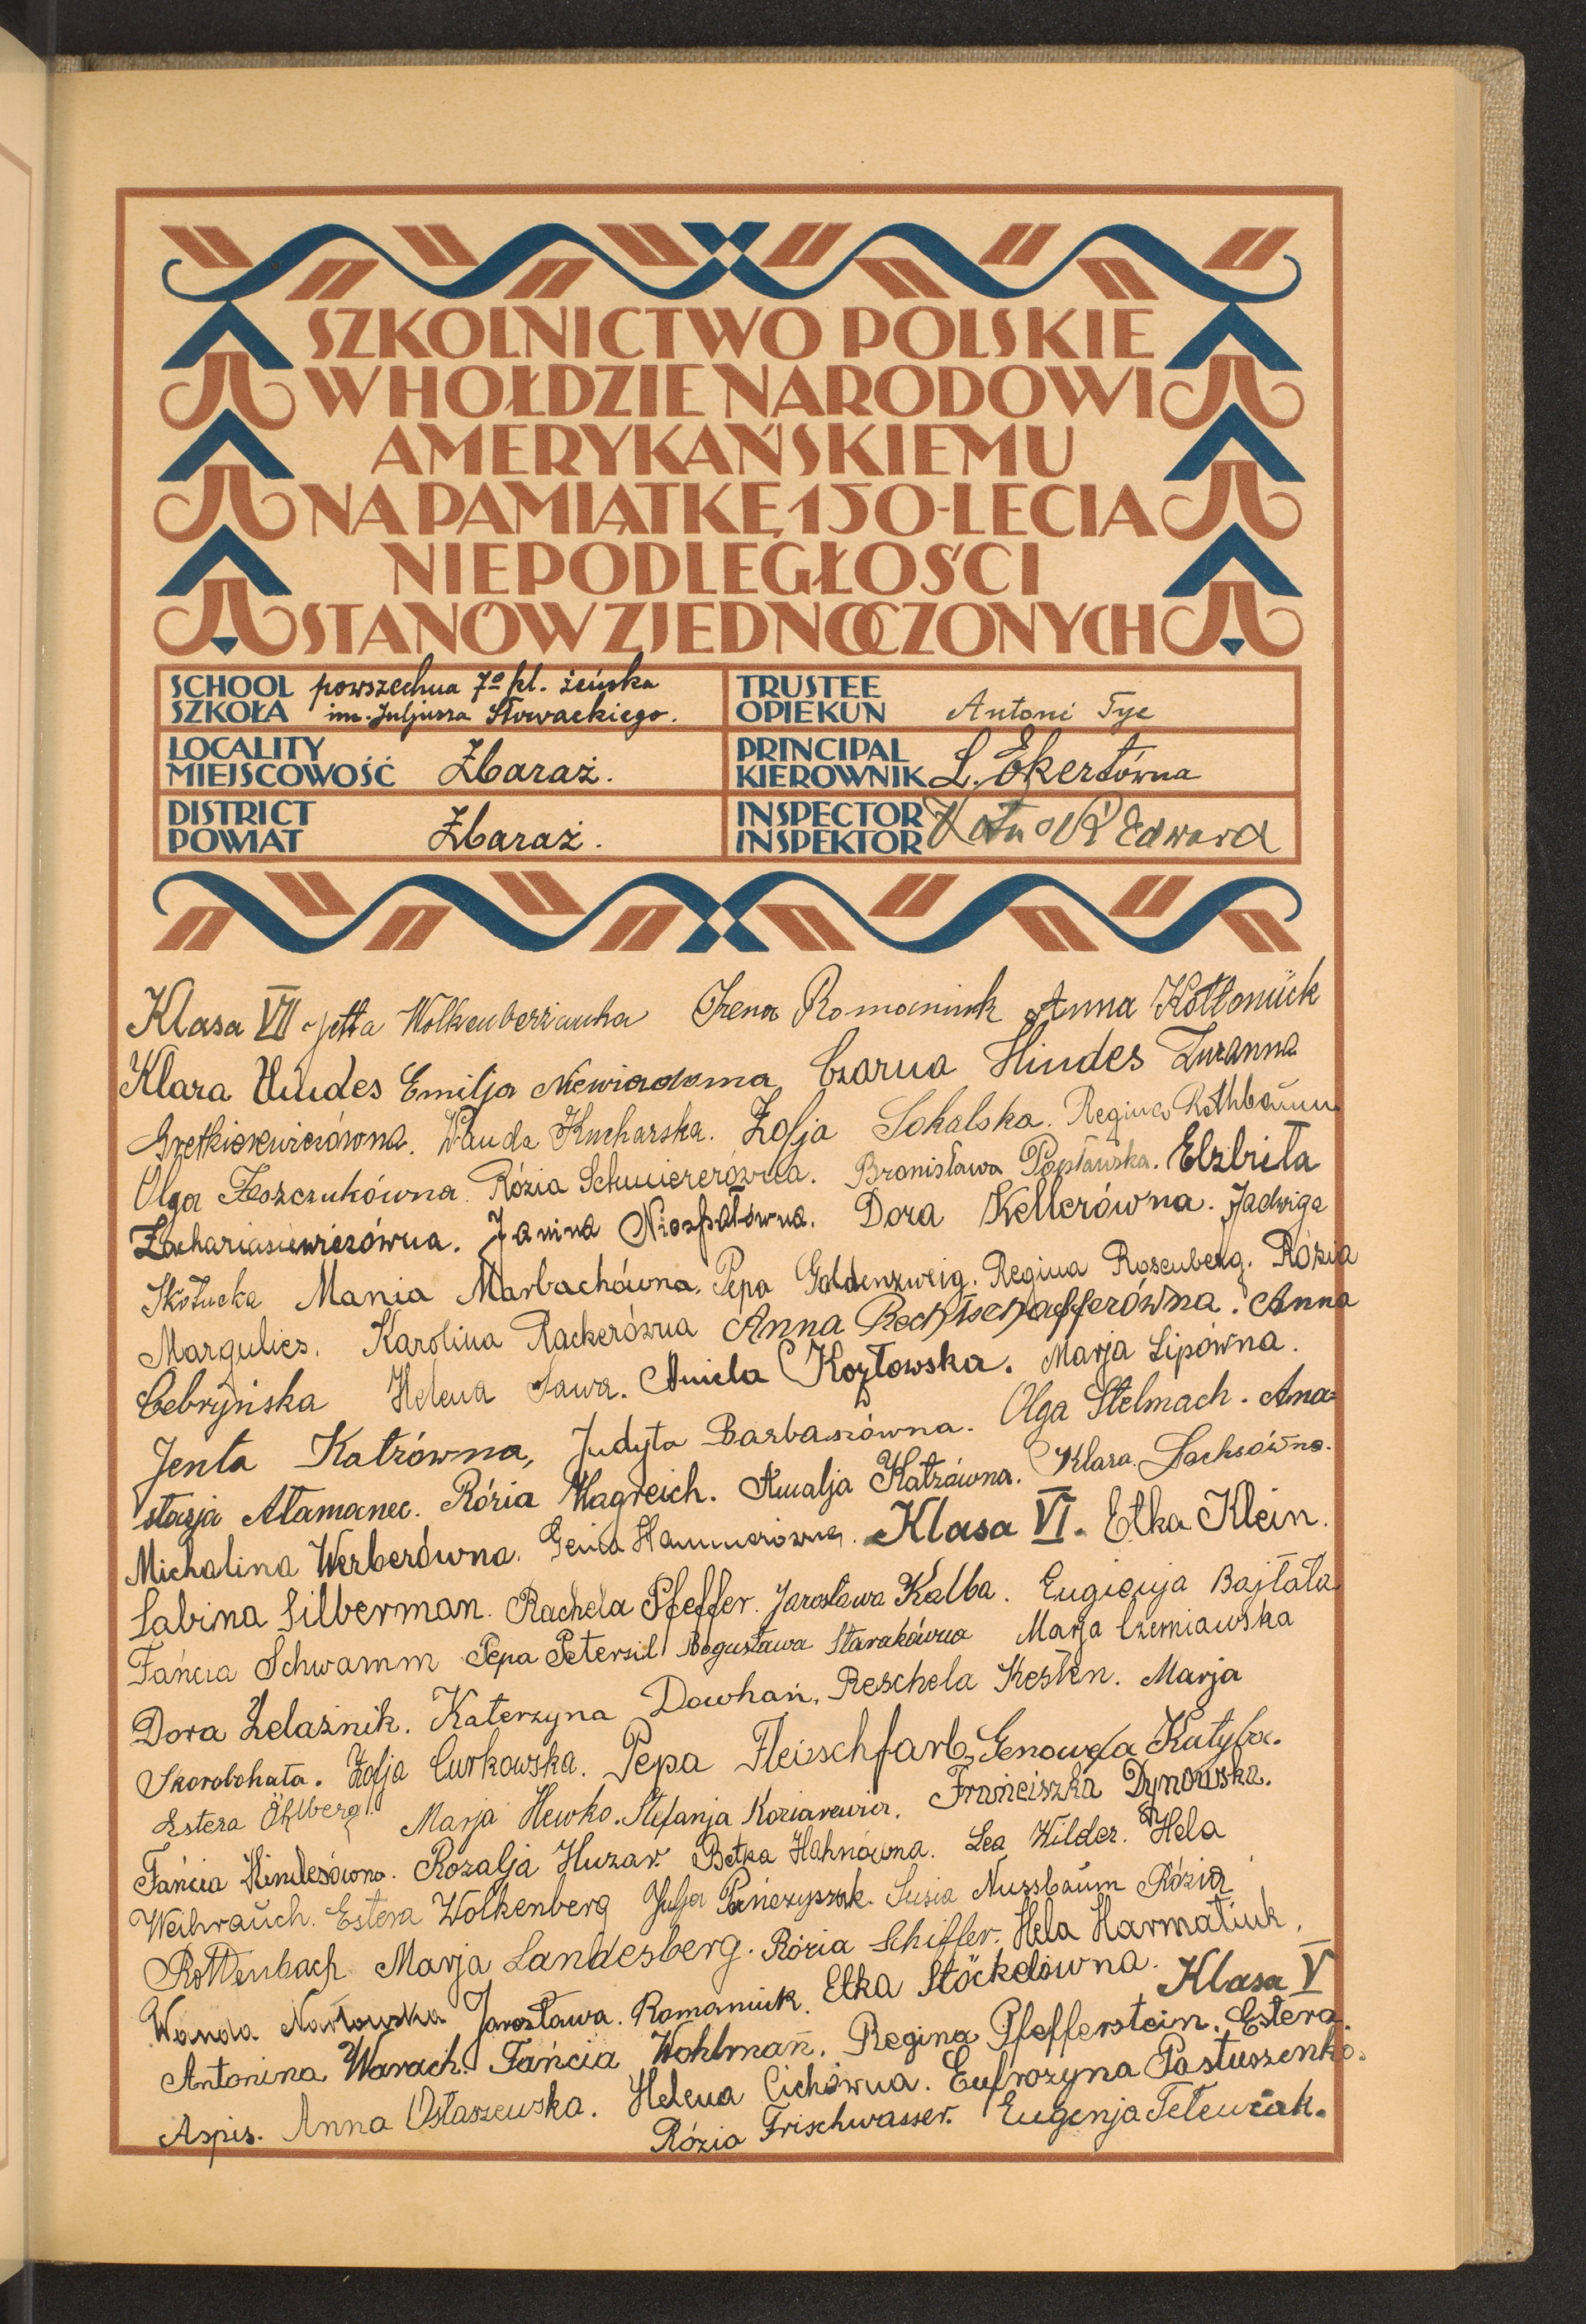 SZKOLNICTWO POLSKIE
W HOŁDZIE NARODOWI
AMERYKAŃSKIEMU
NA PAMIĄTKĘ 150-LECIA
NIEPODLEGŁOŚCI
STANÓW ZJEDNOCZONYCH
SCHOOL SZKOŁA powszechna 7o kl. żeńska
im. Juljusza Słowackiego.
TRUSTEE OPIEKUN Antoni Tyc
LOCALITY MIEJSCOWOŚĆ Zbaraż.
PRINCIPAL KIEROWNIK L. Ekertówna
DISTRICT POWIAT Zbaraż.
INSPECTOR INSPEKTOR Edward
Klasa VII Jetka Irena Romaniuk Anna Kołtoniúk
Klara Hindes Emilja Niewiadoma Czarna Hindes Zuzanna
Wanda Kucharska. Zofja Sokalska. Regina Rothbaum
Olga Róźia Schmiererówna. Bronisława Popławska. Elzbieta
Zachariasiewiczówna. Janina Niespałówna. Dora Kellerówna. Jadwiga
Skotucka Mania Marbachówna. Pepa Goldenzweig. Regina Rosenberg. Rózia
Margulies. Karolina Rackerówna Anna Rechtschafferówna. Anna
Cebryńska Helena Sawa. Aniela Kozłowska. Marja Lipówna.
Jenta Katzówna, Judyta Barbaszówna. Olga Stelmach. Ana=
stazja Atamanec. Rózia Hagreich. Amalja Katzówna. Klara Sachsówna.
Michalina Werberówna. Genia Hammerówna. Klasa VI. Etka Klein.
Sabina Silberman. Rachela Pfeffer. Jarosława Kalba. Eugienja Bajtała
Fańcia Schwamm Pepa Petersil Bogusława Starakówna Marja Czerniawska
Dora Żelaźnik. Katerzyna Dowhań. Reschela Kesten. Marja
Skorobohata. Zofja Curkowska. Pepa Fleischfarb. Genowefa Kutyba.
Estera Öhlberg. Marja Hewko. Stefanja Koziarewicz. Franciszka Dynowska.
Fańcia Hindesówna. Rozalja Huzar. Betka Hahnówna. Lea Wilder. Hela
Weihrauch. Estera Wolkenberg Julja Pańczyszak. Susia Nussbaum Rózia
Rottenbach Marja Landesberg. Rózia Schiffer. Hela Harmatiuk.
Wanda Jarosława Romaniuk. Etka Stöckelówna. Klasa V
Antonina Warach. Fańcia Wohlman. Regina Pfefferstein. Estera
Aspis. Anna Ostaszewska. Helena Cichówna. Eufrozyna Pastuszenko.
Rózia Frischwasser. Eugenja Teleuczak.